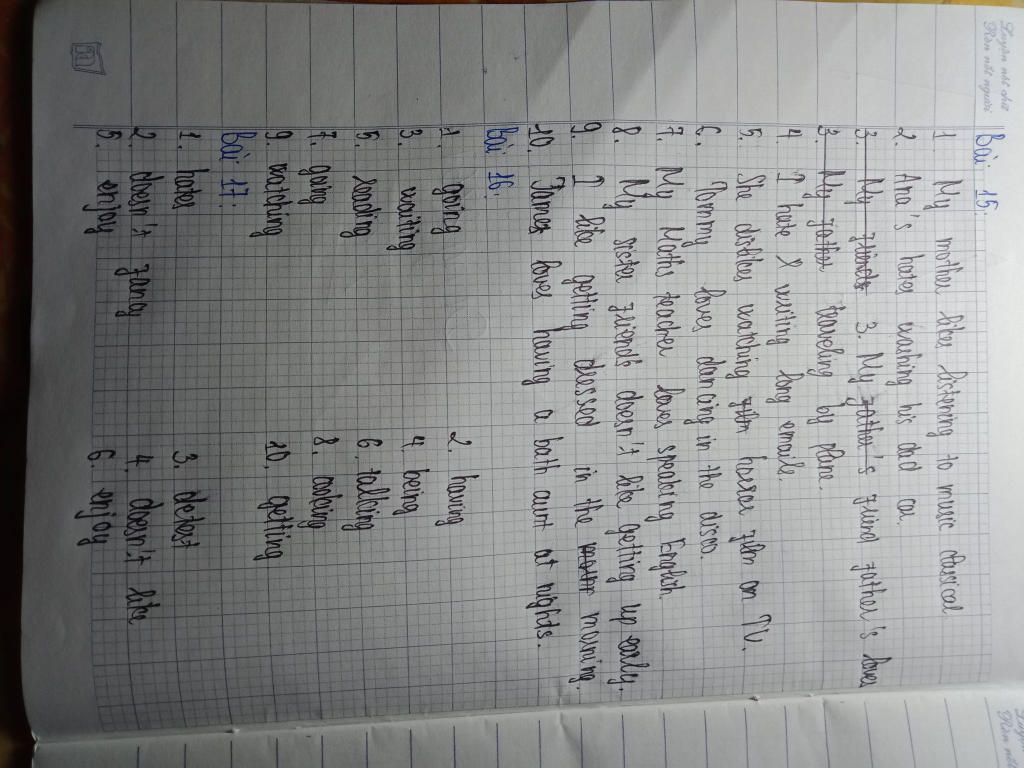 Luyện nét chữ
Rèn nết người
Bài 15:
1. My mother likes listening to music classical.
2. Ana's hates washing his dad car.
3. My friends 3. My father's friend father's loves
3. My father traveling by plane.
4. I hate writing long emails.
5. She dislikes watching film horror film on TV.
6. Tommy loves dancing in the disco.
7. My Maths teacher loves speaking English.
8. My sister friends doesn't like getting up early.
9. I like getting dressed in the morning.
10. Times loves having a bath aunt at nights.
Bài 16:
1. going 2. having
3. waiting 4. being
5. sending 6. talking
7. going 8. cooking
9. watching 10. getting
Bài 17:
1. hates 3. detest
2. doesn't fancy 4. doesn't like
5. enjoy 6. enjoy